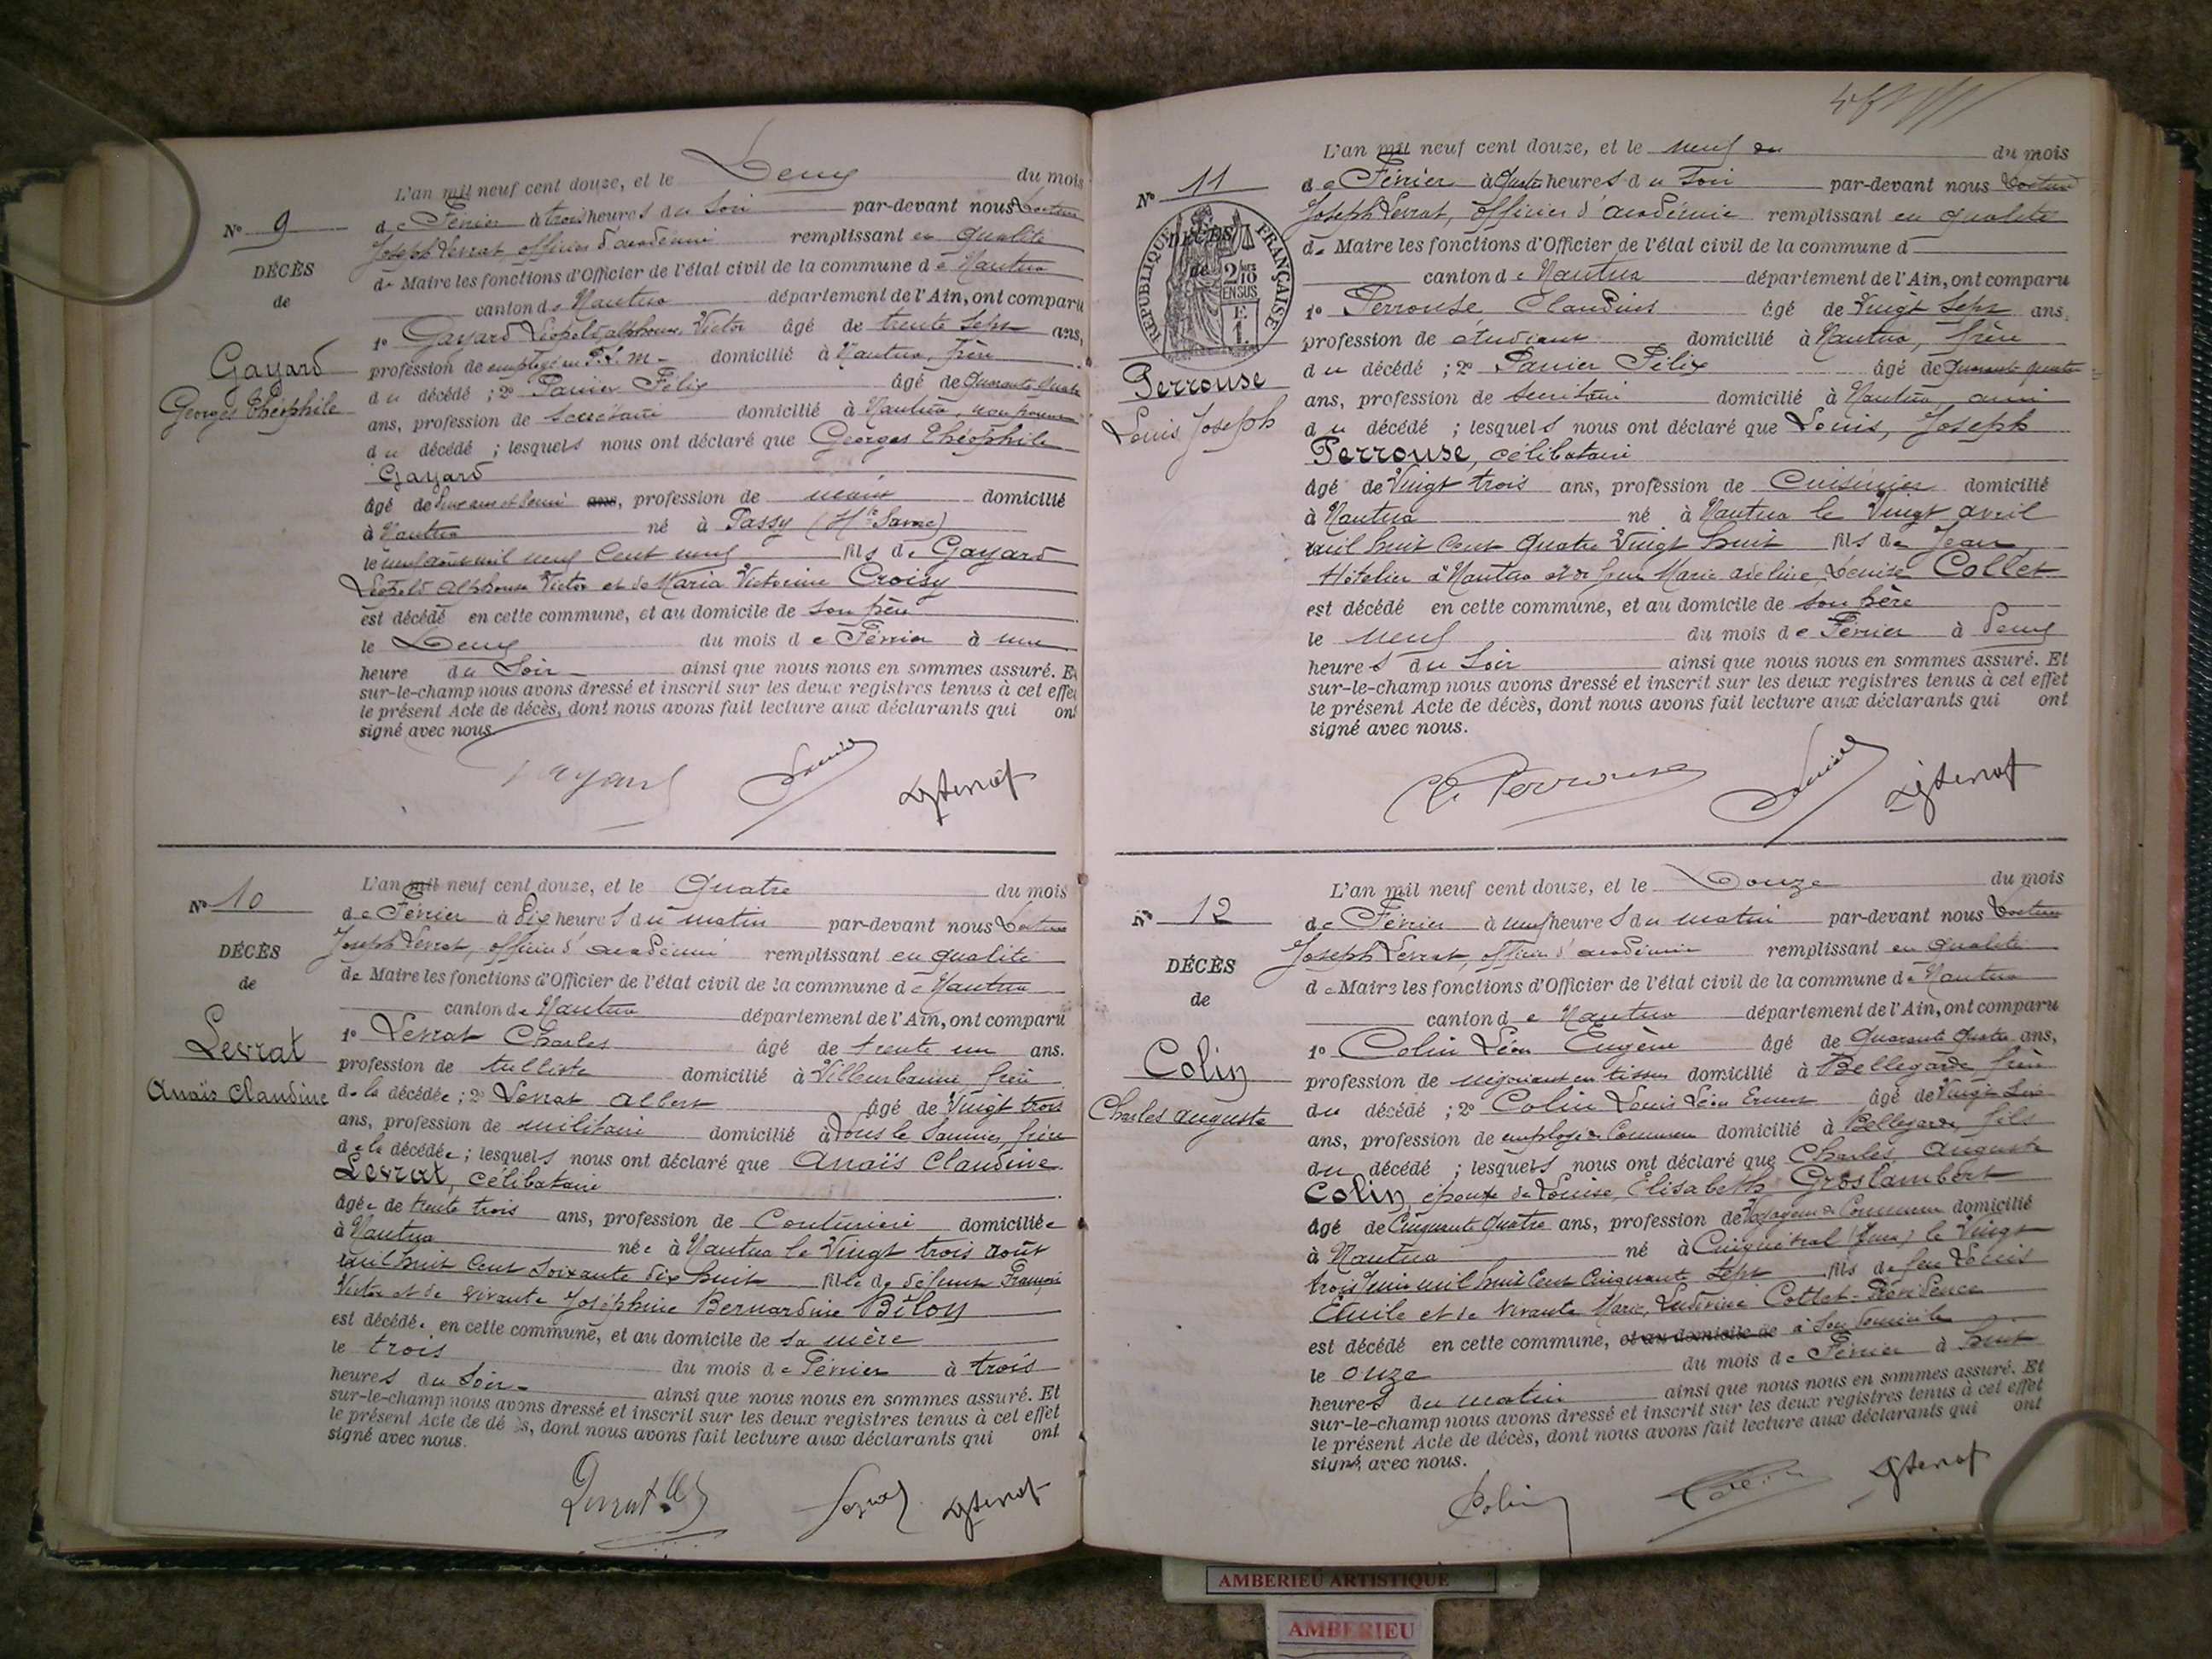 L'an mil neuf cent douze, et le Deux du mois
de Février à trois heures du Soir par-devant nous Docteur
Joseph Levrat officier d'académie remplissant en qualité
de Maire les fonctions d'Officier de l'état civil de la commune de Nantua
canton de Nantua département de l'Ain, ont comparu
1° Gayard Léopold alphonse Victor âgé de trente sept ans,
profession de employé au P.L.M. domicilié à Nantua, père
du décédé ; 2° Panier Félix âgé de Quarante quatre
ans, profession de secrétaire domicilié à Nantua, non parent
du décédé ; lesquels nous ont déclaré que Georges Théophile
Gayard
âgé de deux ans et demi ans, profession de domicilié
à Nantua né à Passy (Hte Savoie)
le neuf août mil neuf Cent neuf fils de Gayard
Léopold Alphonse Victor et de Maria Victorine Croisy
est décédé en cette commune, et au domicile de son père
le Deux du mois de Février à une
heure du Soir ainsi que nous nous en sommes assuré. Et
sur-le-champ nous avons dressé et inscrit sur les deux registres tenus à cet effet
le présent Acte de décès, dont nous avons fait lecture aux déclarants qui ont
signé avec nous.
N° 9
DÉCÈS
de
Gayard
Georges Théophile
Gayard
L'an mil neuf cent douze, et le Quatre du mois
de Février à dix heures du matin par-devant nous Docteur
Joseph Levrat, officier d'académie remplissant en qualité
de Maire les fonctions d'Officier de l'état civil de la commune de Nantua
canton de Nantua département de l'Ain, ont comparu
1° Levrat Charles âgé de trente un ans.
profession de tulliste domicilié à Villeurbanne frère
de la décédée ; 2° Levrat Albert âgé de Vingt trois
ans, profession de militaire domicilié à Lons le Saunier, frère
de la décédée ; lesquels nous ont déclaré que Anaïs Claudine
Levrat, célibataire
âgée de trente trois ans, profession de Couturière domiciliée
à Nantua née à Nantua le Vingt trois août
mil huit Cent Soixante dix huit fille de défunt François
Victor et de vivante Joséphine Bernardine Billoy
est décédée en cette commune, et au domicile de sa mère
le trois du mois de Février à trois
heures du Soir ainsi que nous nous en sommes assuré. Et
sur-le-champ nous avons dressé et inscrit sur les deux registres tenus à cet effet
le présent Acte de décès, dont nous avons fait lecture aux déclarants qui ont
signé avec nous.
N° 10
DÉCÈS
de
Levrat
Anaïs Claudine
L'an mil neuf cent douze, et le neuf du mois
de Février à Quatre heures du Soir par-devant nous Docteur
Joseph Levrat, officier d'académie remplissant en qualité
de Maire les fonctions d'Officier de l'état civil de la commune d
canton de Nantua département de l'Ain, ont comparu
1° Perrouse Claudius âgé de Vingt Sept ans,
profession de étudiant domicilié à Nantua, frère
du décédé ; 2° Panier Félix âgé de quarante quatre
ans, profession de secrétaire domicilié à Nantua, ami
du décédé ; lesquels nous ont déclaré que Louis, Joseph
Perrouse, célibataire
âgé de Vingt trois ans, profession de Cuisinier domicilié
à Nantua né à Nantua le Vingt avril
mil huit Cent Quatre Vingt huit fils de Jean
Hôtelier à Nantua et de feue Marie adeline, Denise Collet
est décédé en cette commune, et au domicile de son père
le neuf du mois de Février à Deux
heures du Soir ainsi que nous nous en sommes assuré. Et
sur-le-champ nous avons dressé et inscrit sur les deux registres tenus à cet effet
le présent Acte de décès, dont nous avons fait lecture aux déclarants qui ont
signé avec nous.
N° 11
RÉPUBLIQUE FRANÇAISE
DÉCÈS
de
2/10 EN SUS
Perrouse
Louis Joseph
C. Perrouse
L'an mil neuf cent douze, et le Douze du mois
de Février à neuf heures du matin par-devant nous Docteur
Joseph Levrat, officier d'académie remplissant en qualité
de Maire les fonctions d'Officier de l'état civil de la commune de Nantua
canton de Nantua département de l'Ain, ont comparu
1° Colin Léon Eugène âgé de Quarante Quatre ans,
profession de négociant en tissus domicilié à Bellegarde, frère
du décédé ; 2° Colin Louis Léon Ernest âgé de Vingt Six
ans, profession de employé de Commerce domicilié à Bellegarde, fils
du décédé ; lesquels nous ont déclaré que Charles, Auguste
Colin, époux de Louise, Elisabeth Groslambert
âgé de Cinquante Quatre ans, profession de Voyageur de Commerce domicilié
à Nantua né à Cuiquétral (Jura) le Vingt
trois Juin mil huit Cent Cinquante Sept fils de feu Louis
Emile et de vivante Marie, Ludivine Cottet-Prévidence
est décédé en cette commune, et au domicile de à son domicile
le onze du mois de Février à huit
heures du matin ainsi que nous nous en sommes assuré. Et
sur-le-champ nous avons dressé et inscrit sur les deux registres tenus à cet effet
le présent Acte de décès, dont nous avons fait lecture aux déclarants qui ont
signé avec nous.
N° 12
DÉCÈS
de
Colin
Charles auguste
Colin
AMBERIEU ARTISTIQUE
AMBERIEU